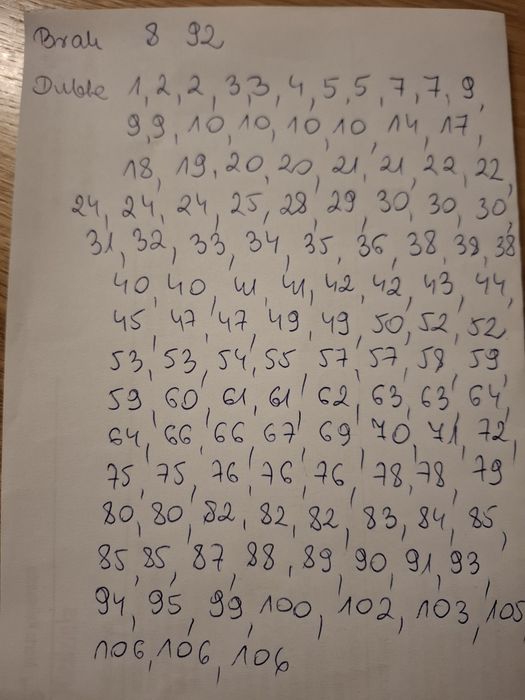 Brak 8 92
Duble 1, 2, 2, 3, 3, 4, 5, 5, 7, 7, 9,
9, 9, 10, 10, 10, 10, 14, 17,
18, 19, 20, 20, 21, 21, 22, 22,
24, 24, 24, 25, 28, 29, 30, 30, 30,
31, 32, 33, 34, 35, 36, 38, 38, 38
40, 40, 41, 41, 42, 42, 43, 44,
45, 47, 47, 49, 49, 50, 52, 52
53, 53, 54, 55, 57, 57, 58, 59
59, 60, 61, 61, 62, 63, 63, 64,
64, 66, 66, 67, 69, 70, 71, 72,
75, 75, 76, 76, 76, 78, 78, 79
80, 80, 82, 82, 82, 83, 84, 85,
85, 85, 87, 88, 89, 90, 91, 93,
94, 95, 99, 100, 102, 103, 105
106, 106, 106